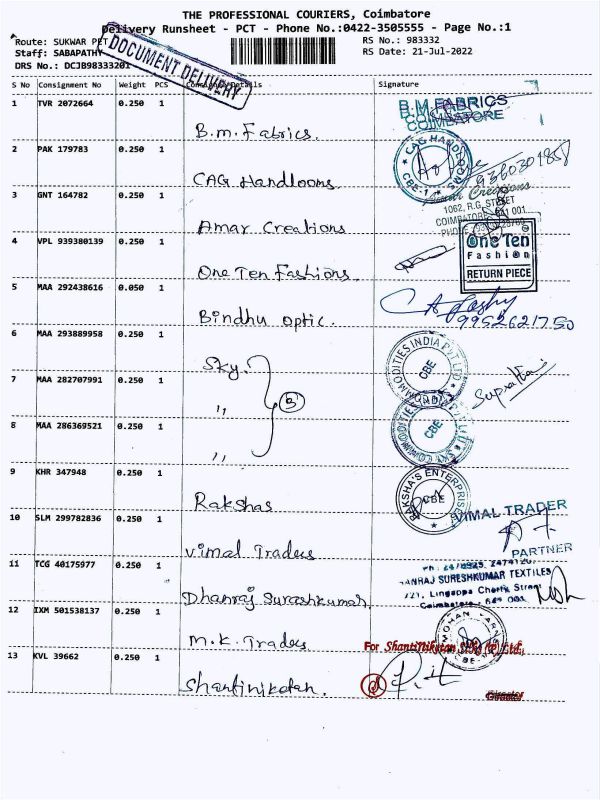 THE PROFESSIONAL COURIERS, Coimbatore
Delivery Runsheet - PCT - Phone No.:0422-3505555 - Page No.:1
Route: SUKWAR PET
RS No.: 983332
Staff: SABAPATHY
RS Date: 21-Jul-2022
DRS No.: DCJB98333201
DOCUMENT DELIVERY
S No Consignment No Weight PCS Consignee Details Signature
1 TVR 2072664 0.250 1
B.m. Fabrics.
B.M.FABRICS
COIMBATORE
2 PAK 179783 0.250 1
CAG Handlooms
CAG HANDLOOMS
CBE-1
9360301858
3 GNT 164782 0.250 1
Amar Creations
Amar Creations
1062, R.G. STREET
COIMBATORE 641 001
4 VPL 939380139 0.250 1
One Ten Fashions
One Ten
Fashion
RETURN PIECE
5 MAA 292438616 0.050 1
Bindhu optic.
9952621750
6 MAA 293889958 0.250 1
Sky.
COMMODITIES INDIA PVT LTD
CBE
7 MAA 282707991 0.250 1
,,
3
8 MAA 286369521 0.250 1
,,
SKY COMMODITIES
CBE
9 KHR 347948 0.250 1
Rakshas
RAKSHA'S ENTERPRISES
CBE
10 SLM 299782836 0.250 1
Vimal Traders
VIMAL TRADER
PARTNER
11 TCG 40175977 0.250 1
Dhanraj Surashkumar
DHANRAJ SURESHKUMAR TEXTILES
721, Lingappa Chetty Street
Coimbatore - 641 001
12 IXM 501538137 0.250 1
M.K. Traders
13 KVL 39662 0.250 1
Shantiniketan.
For Shantiniketan
Director